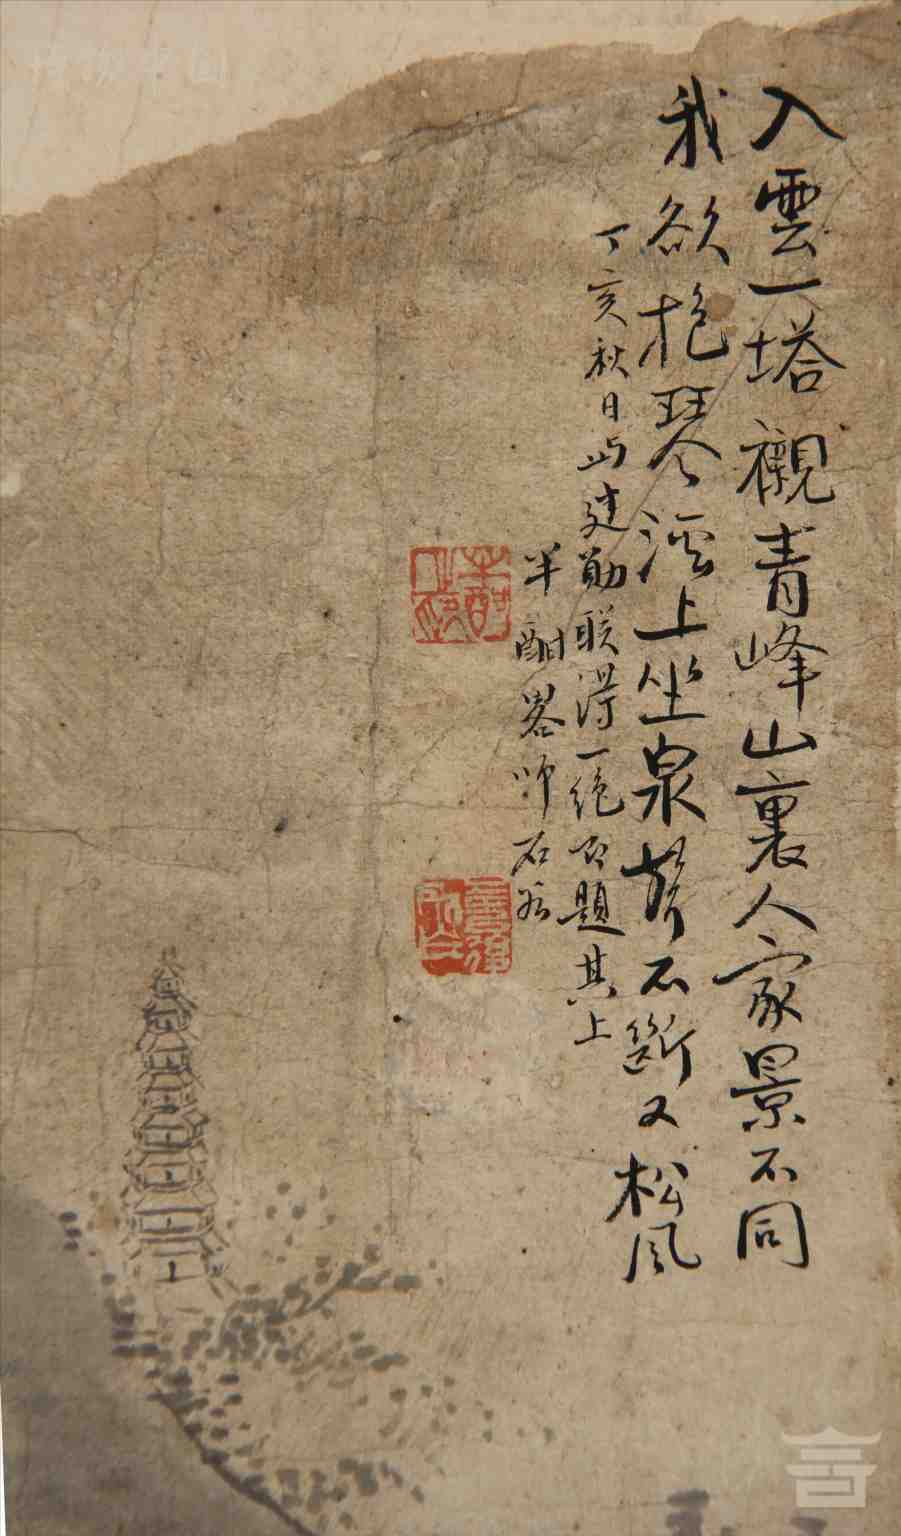 入雲一塔襯青峰山裏人家景不同
我欲抱琴溪上坐泉聲不斷又松風
丁亥秋日与建勛联得一绝即題其上
半酣畧师石谷